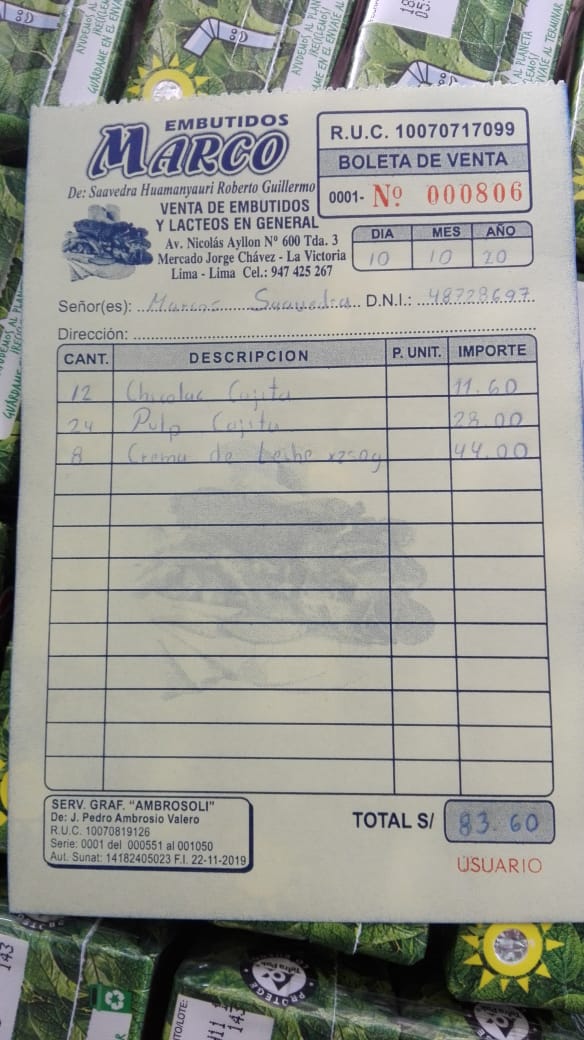 AYUDEMOS AL PLANETA
¡RECÍCLEME!
GUÁRDAME EN EL ENVASE AL TERMINAR
EMBUTIDOS
MARCO
De: Saavedra Huamanyauri Roberto Guillermo
VENTA DE EMBUTIDOS
Y LACTEOS EN GENERAL
Av. Nicolás Ayllon Nº 600 Tda. 3
Mercado Jorge Chávez - La Victoria
Lima - Lima Cel.: 947 425 267
R.U.C. 10070717099
BOLETA DE VENTA
0001- Nº 000806
DIA MES AÑO
10 10 20
Señor(es): Marcos Saavedra D.N.I.: 48728697
Dirección:
CANT. DESCRIPCION P. UNIT. IMPORTE
12 Chocolac Cajita 11.60
24 Pulp Cajita 28.00
8 Crema de Leche x250g 44.00
SERV. GRAF. "AMBROSOLI"
De: J. Pedro Ambrosio Valero
R.U.C. 10070819126
Serie: 0001 del 000551 al 001050
Aut. Sunat: 14182405023 F.I. 22-11-2019
TOTAL S/ 83.60
USUARIO
143
PROTEGE